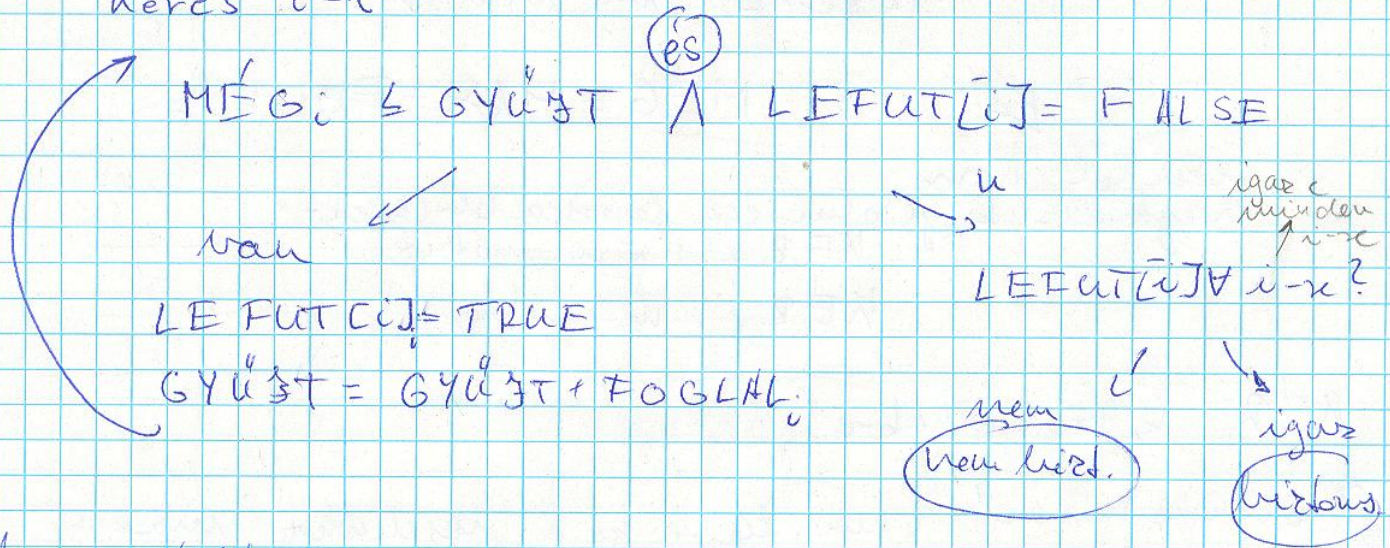 és
MÉGi ≤ GYŰJT ∧ LEFUT[i] = FALSE
van
igaz e
minden
i-re
LEFUT[i] ∀ i-re?
LEFUT[i] = TRUE
GYŰJT = GYŰJT + FOGLALi
nem
igaz
nem bizt.
biztons.